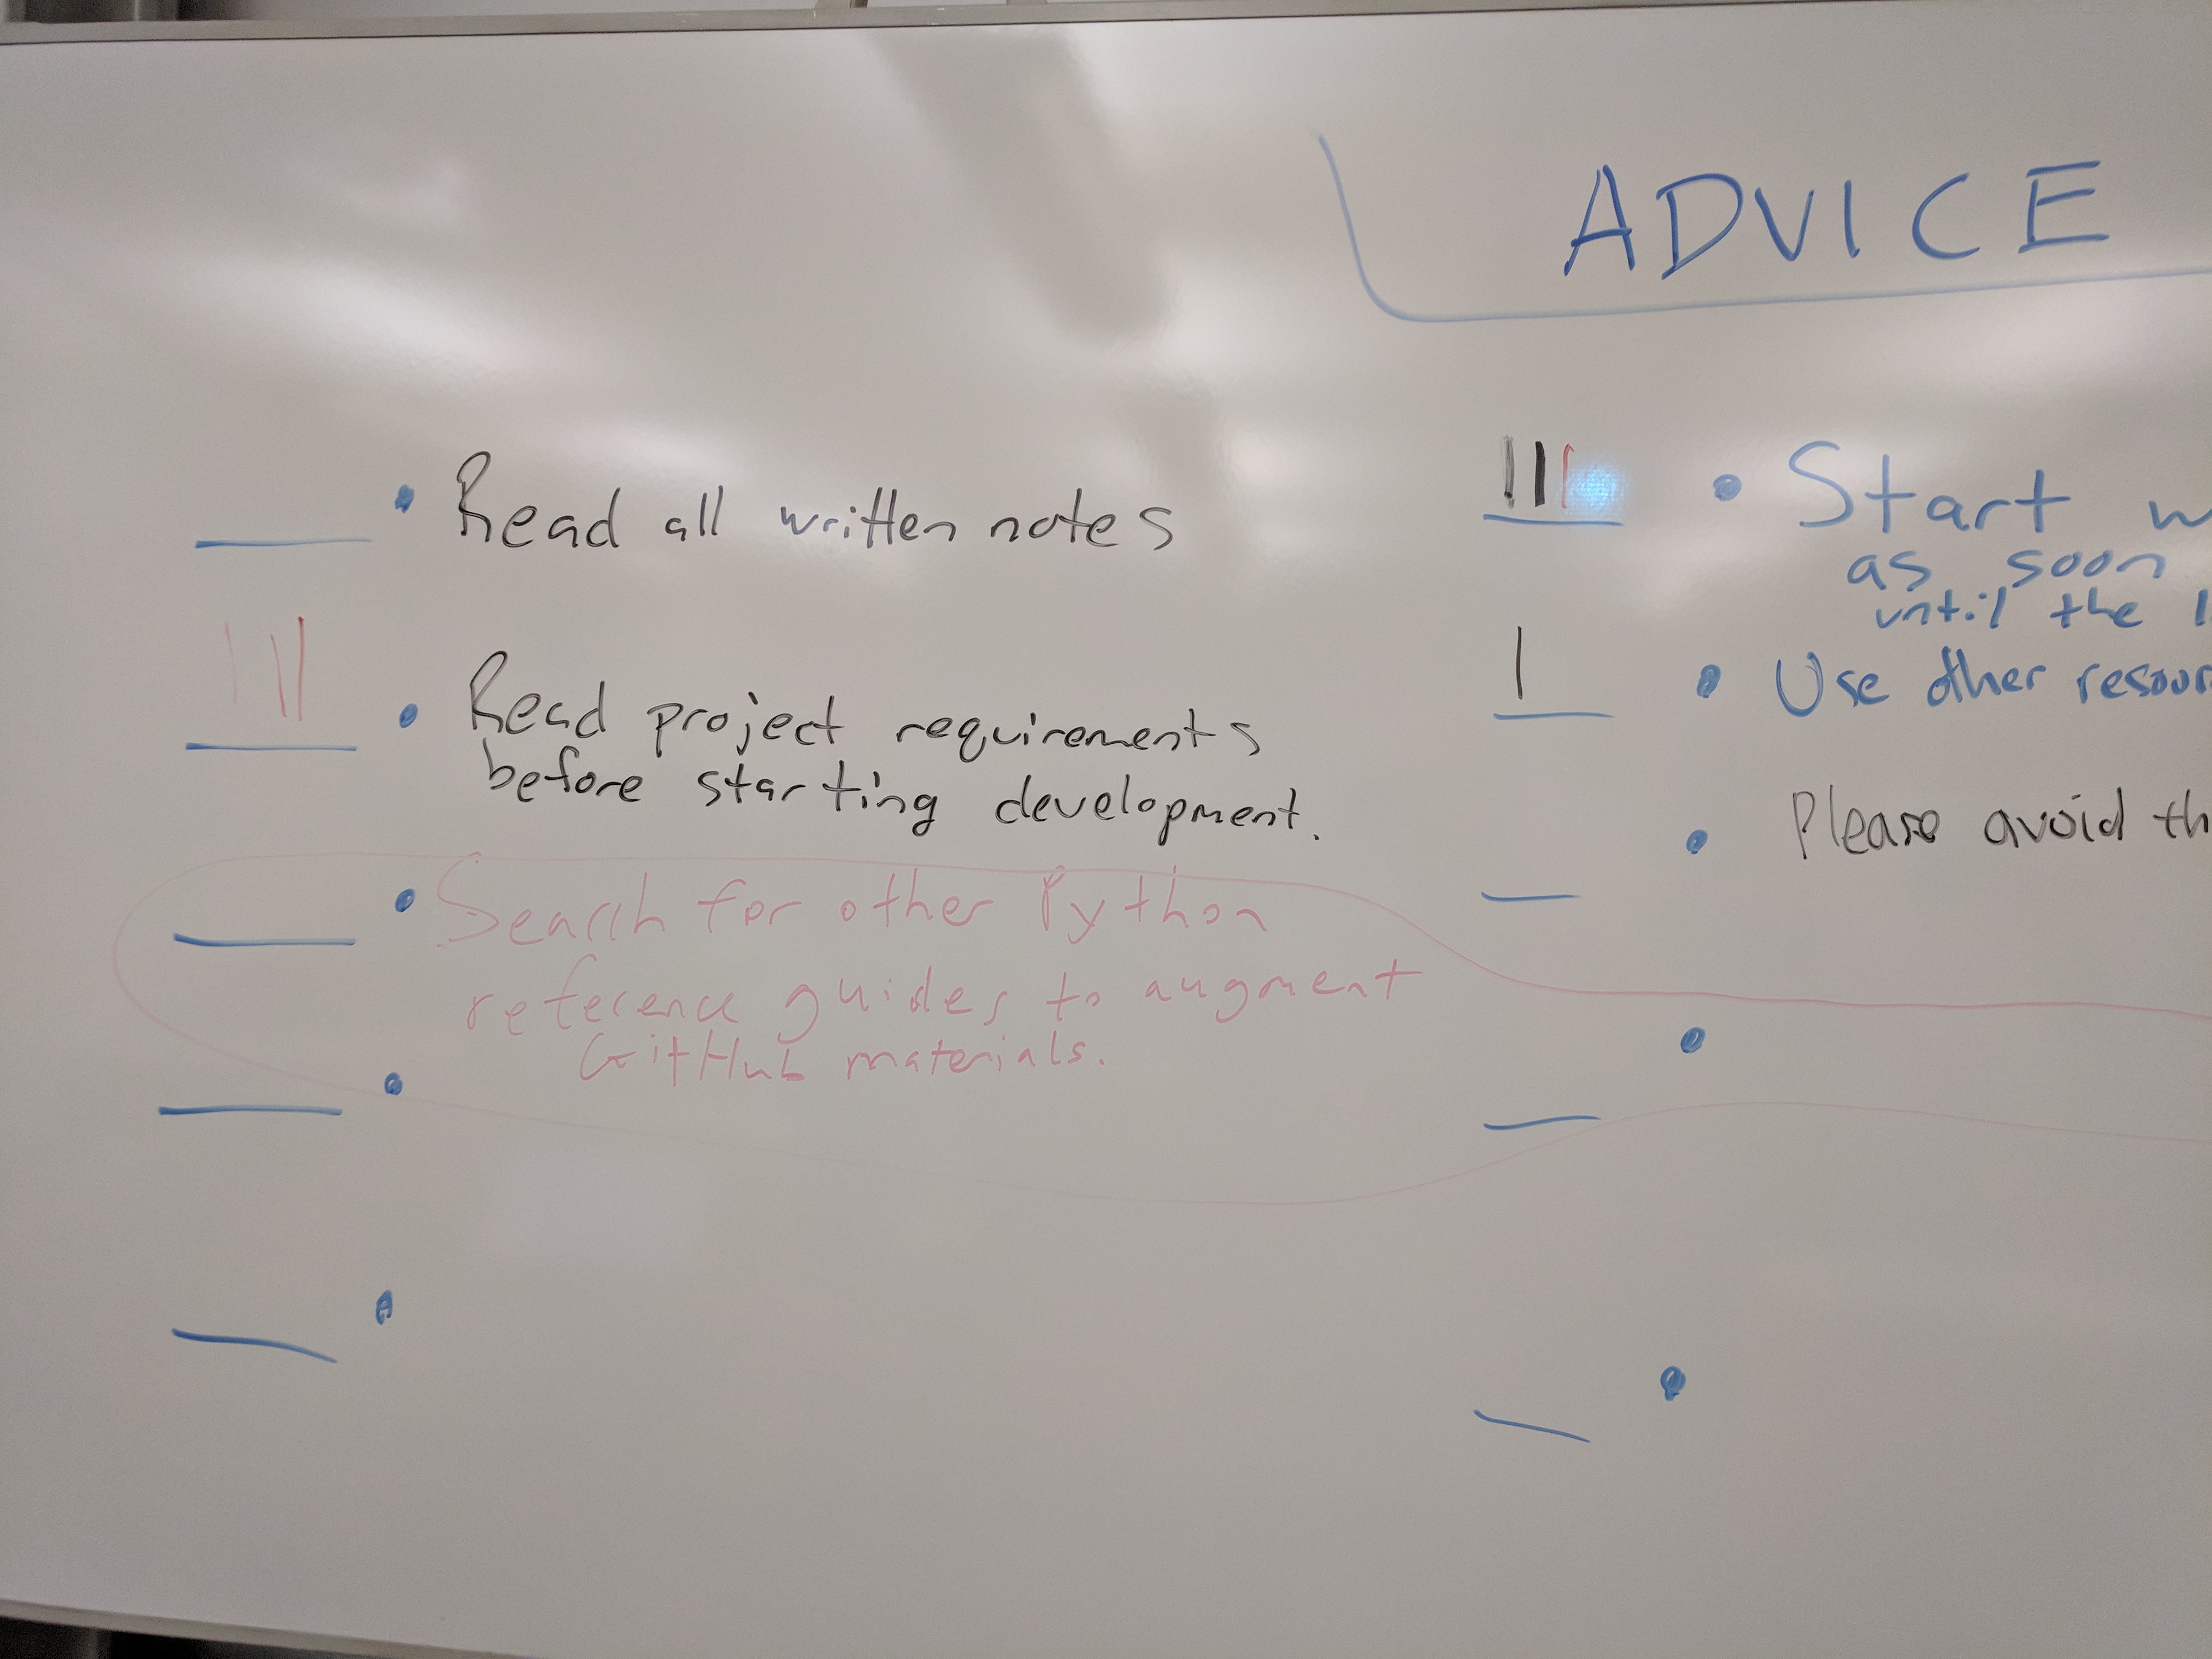 ADVICE
• Read all written notes
• Read project requirements
before starting development.
• Search for other Python
reference guides to augment
GitHub materials.
•
•
||| • Start
as soon
until the
| • Use other
• Please avoid
•
•